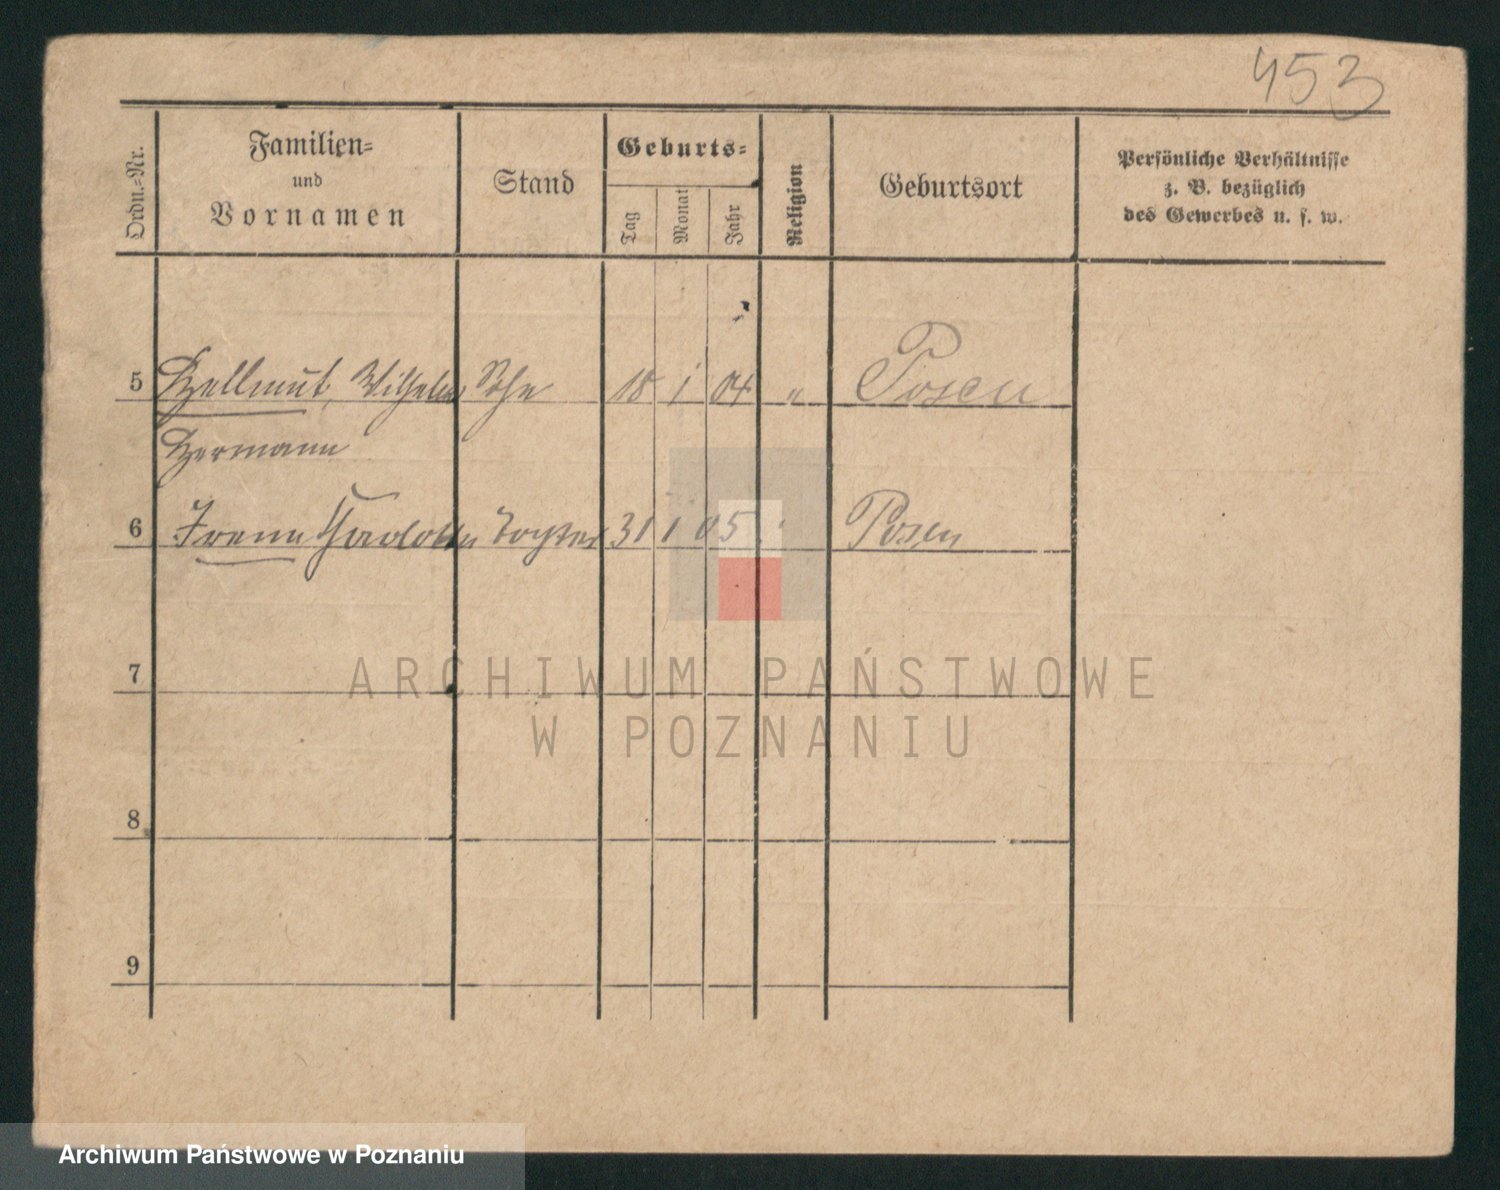 453
Ordn.-Nr.
Familien-
und
Vornamen
Stand
Geburts-
Tag
Monat
Jahr
Religion
Geburtsort
Persönliche Verhältnisse
z. B. bezüglich
des Gewerbes u. s. w.
5 Hellmut, Wilhelm Sohn 18 1 04 " Posen
Hermann
6 Irene Charlotte Tochter 31 1 05 Posen
7
8
9
ARCHIWUM PAŃSTWOWE
W POZNANIU
Archiwum Państwowe w Poznaniu